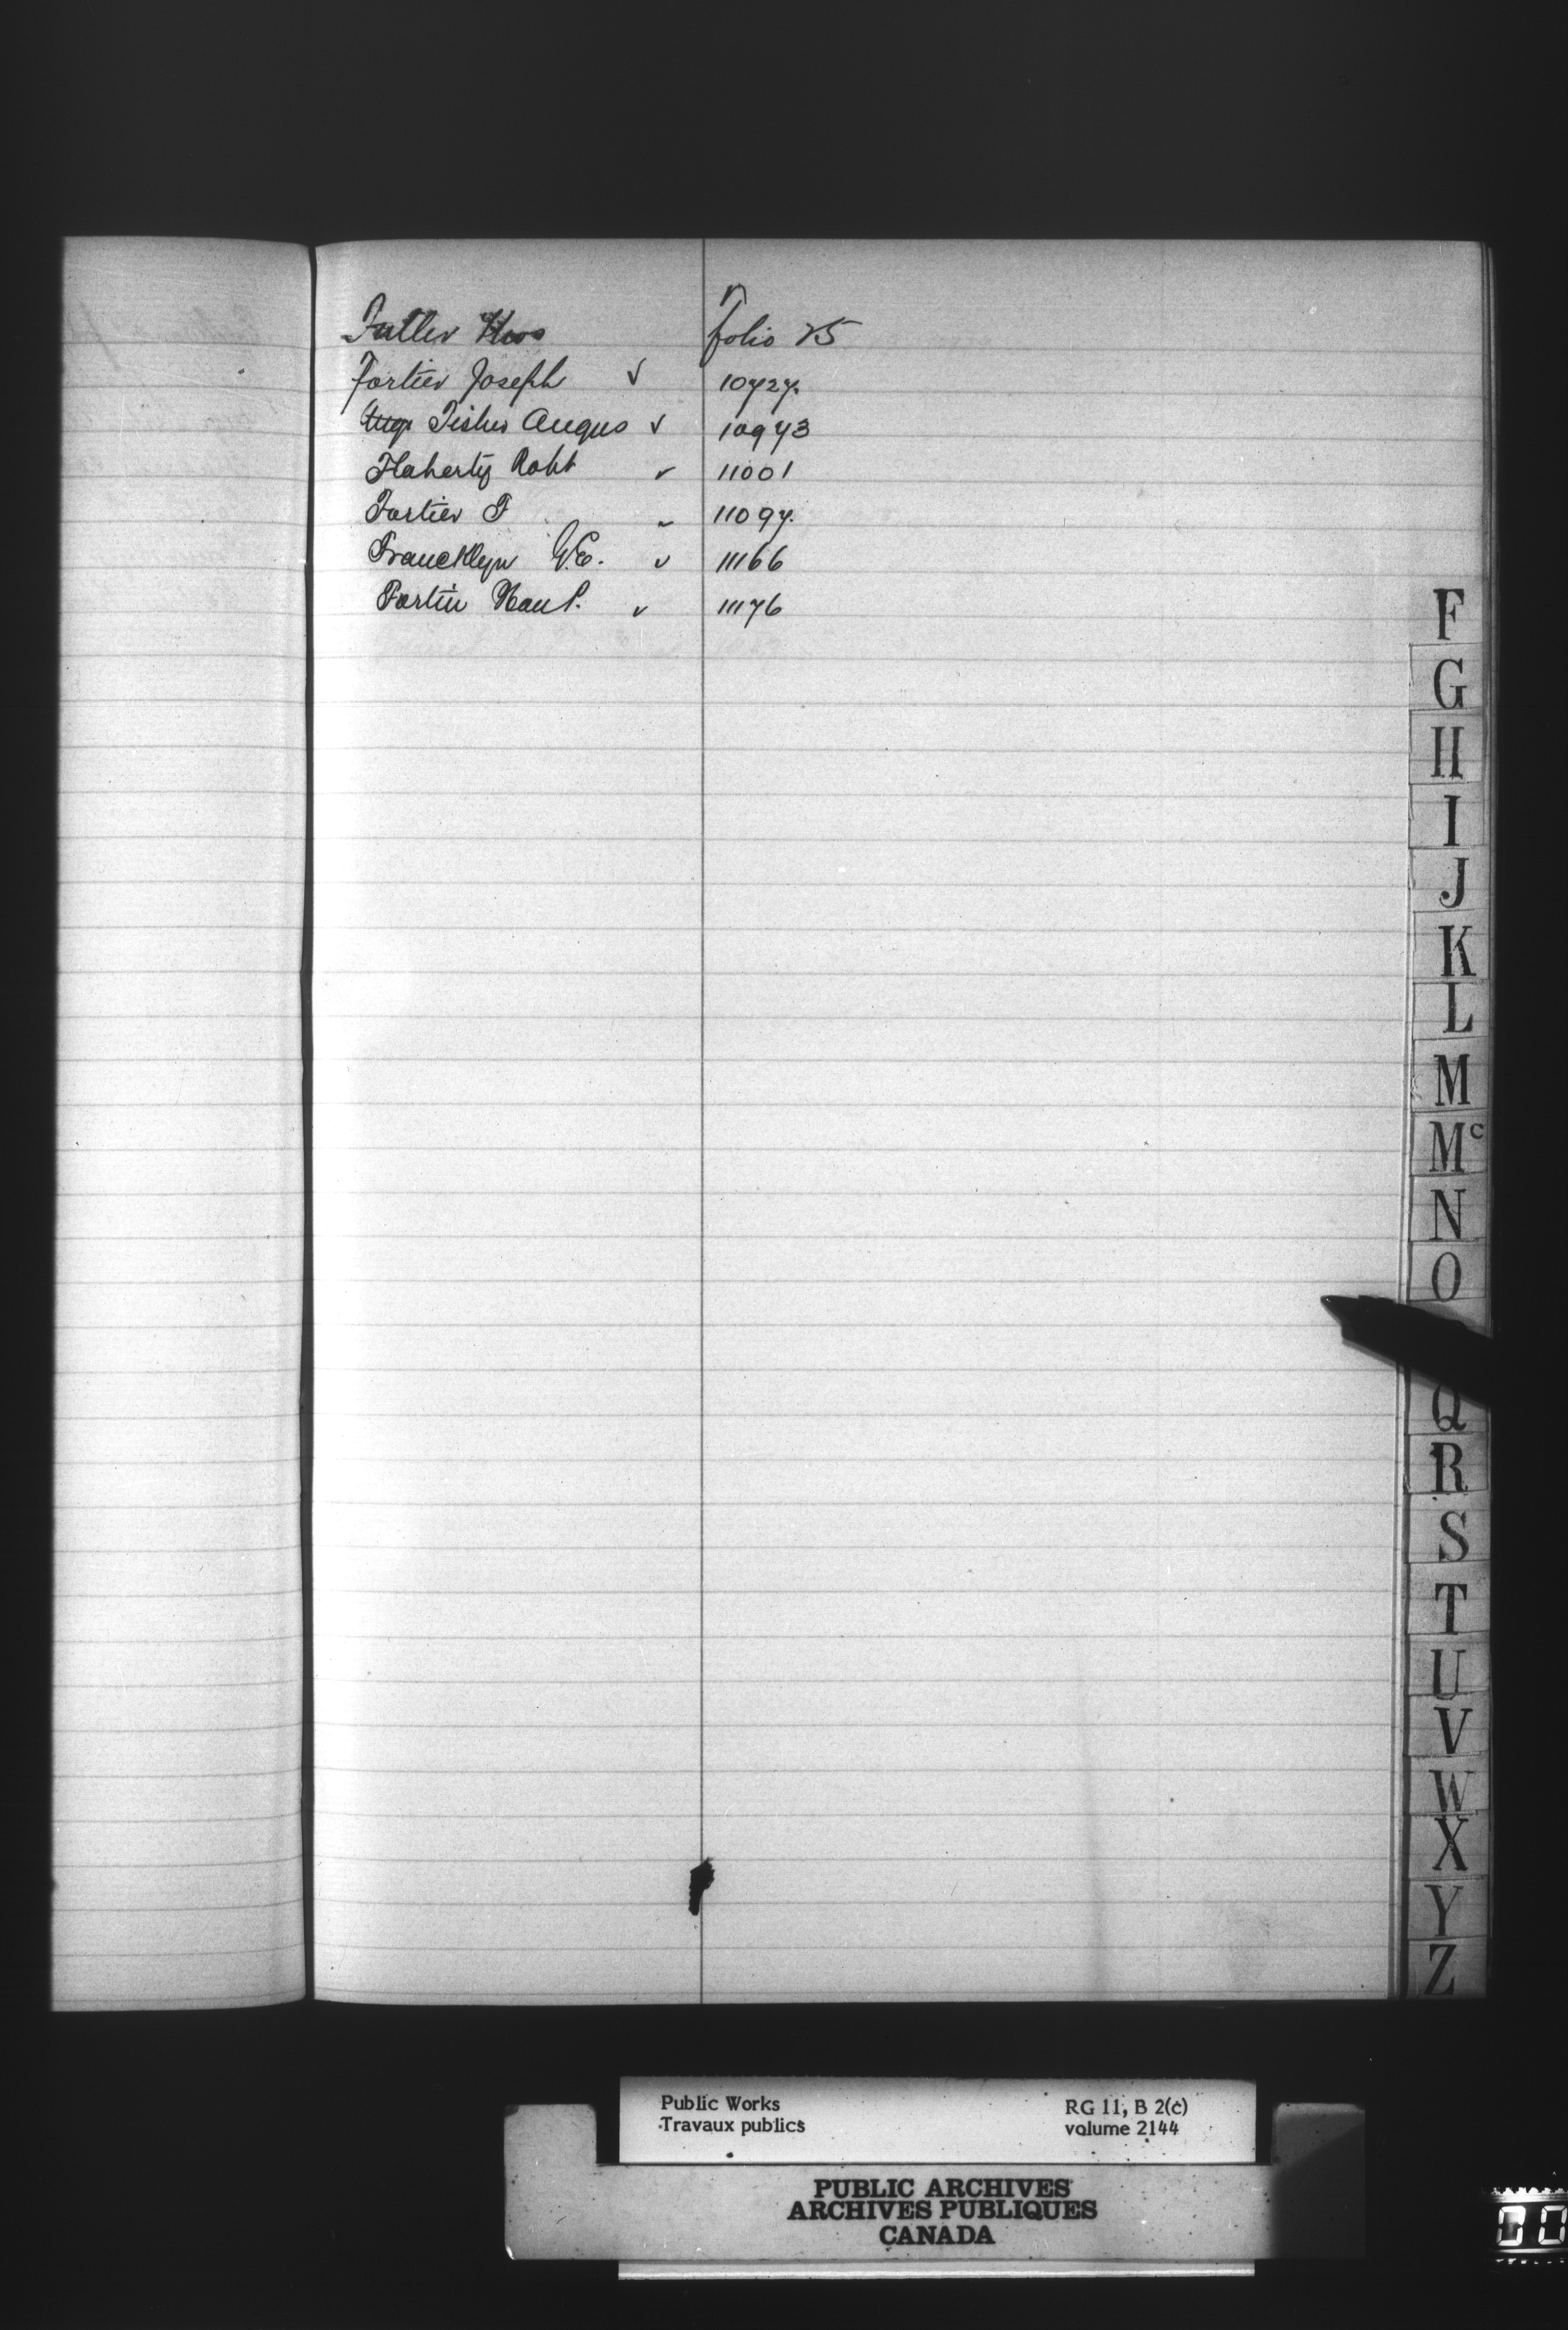 Fuller Thos folio 25
Fortier Joseph ✓ 10727.
Fisher Angus ✓ 10973
Flaherty Robt ✓ 11001
Fortier F ✓ 11097.
Francklyn G.E. ✓ 11166
Fortin ✓ 11176
F
G
H
I
J
K
L
M
Mc
N
O
Q
R
S
T
U
V
W
X
Y
Z
Public Works RG 11, B 2(c)
Travaux publics volume 2144
PUBLIC ARCHIVES
ARCHIVES PUBLIQUES
CANADA